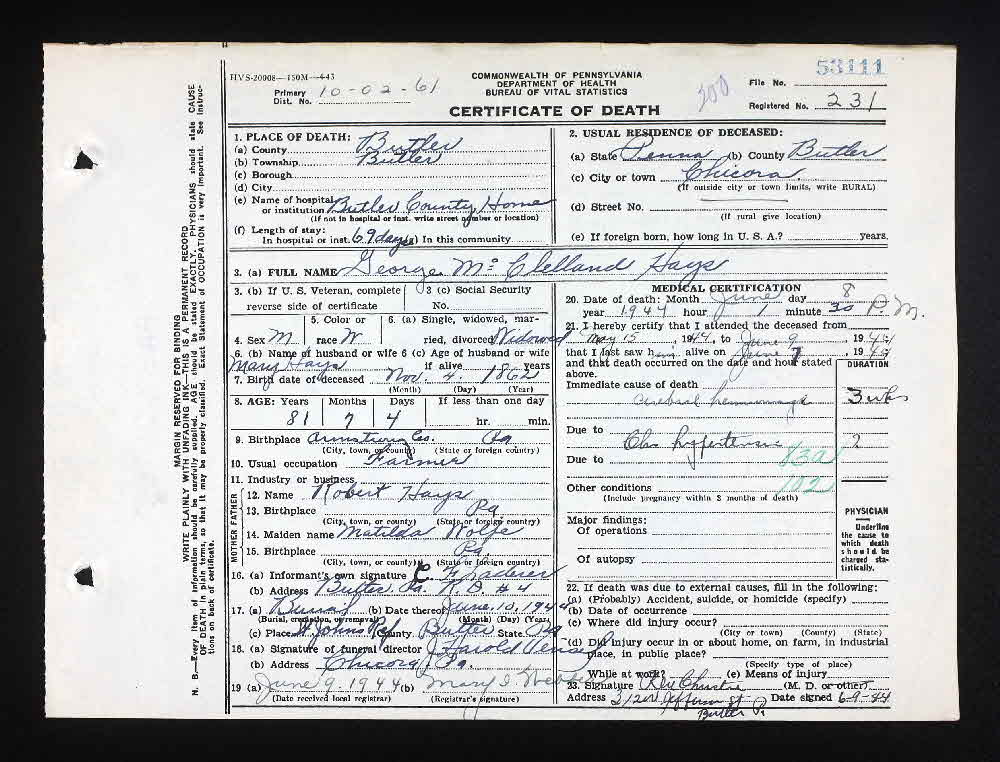 HVS-20008—150M—4-43
COMMONWEALTH OF PENNSYLVANIA
DEPARTMENT OF HEALTH
BUREAU OF VITAL STATISTICS
CERTIFICATE OF DEATH
Primary Dist. No. 10-02-61
200
File No. 53111
Registered No. 231
MARGIN RESERVED FOR BINDING
WRITE PLAINLY WITH UNFADING INK—THIS IS A PERMANENT RECORD
N. B.—Every item of information should be carefully supplied. AGE should be stated EXACTLY. PHYSICIANS should state CAUSE
OF DEATH in plain terms, so that it may be properly classified. Exact Statement of OCCUPATION is very important. See Instruc-
tions on back of certificate.
1. PLACE OF DEATH:
(a) County Butler
(b) Township Butler
(c) Borough
(d) City
(e) Name of hospital or institution Butler County Home
(If not in hospital or inst. write street number or location)
(f) Length of stay:
In hospital or inst. 69 days (g) In this community
2. USUAL RESIDENCE OF DECEASED:
(a) State Penna (b) County Butler
(c) City or town Chicora
(If outside city or town limits, write RURAL)
(d) Street No.
(If rural give location)
(e) If foreign born, how long in U. S. A.? years.
3. (a) FULL NAME George Mc Clelland Hays
3. (b) If U. S. Veteran, complete reverse side of certificate
3 (c) Social Security No.
4. Sex M
5. Color or race W
6. (a) Single, widowed, married, divorced Widowed
6. (b) Name of husband or wife Mary Hays
6 (c) Age of husband or wife if alive years
7. Birth date of deceased Nov. 4 1862
(Month) (Day) (Year)
8. AGE: Years Months Days If less than one day
81 7 4 hr. min.
9. Birthplace Armstrong Co. Pa
(City, town, or county) (State or foreign country)
10. Usual occupation Farmer
11. Industry or business
FATHER
12. Name Robert Hays
13. Birthplace Pa.
(City, town, or county) (State or foreign country)
MOTHER
14. Maiden name Matilda Wolfe
15. Birthplace Pa.
(City, town, or county) (State or foreign country)
16. (a) Informant's own signature C.
(b) Address Butler, Pa. R D #4
17. (a) Burial (b) Date thereof June 10, 1944
(Burial, cremation, or removal) (Month) (Day) (Year)
(c) Place St Johns Ref County Butler State Pa
18. (a) Signature of funeral director Harold
(b) Address Chicora, Pa.
19 (a) June 9, 1944 (b) Mary
(Date received local registrar) (Registrar's signature)
MEDICAL CERTIFICATION
20. Date of death: Month June day 8
year 1944 hour 1 minute 30 P.M.
21. I hereby certify that I attended the deceased from
May 15 1944, to June 9 1944
that I last saw him alive on June 7, 1944
and that death occurred on the date and hour stated above.
DURATION
Immediate cause of death
Cerebral hemorrhage 3 wks
Due to Chr hypertensive ?
Due to 83a
102
Other conditions
(Include pregnancy within 3 months of death)
Major findings:
Of operations
Of autopsy
PHYSICIAN
Underline
the cause to
which death
should be
charged sta-
tistically.
22. If death was due to external causes, fill in the following:
(a) (Probably) Accident, suicide, or homicide (specify)
(b) Date of occurrence
(c) Where did injury occur?
(City or town) (County) (State)
(d) Did injury occur in or about home, on farm, in industrial
place, in public place?
(Specify type of place)
While at work? (e) Means of injury
23. Signature Christie (M. D. or other)
Address Jefferson St Date signed 6-9-44
Butler Pa